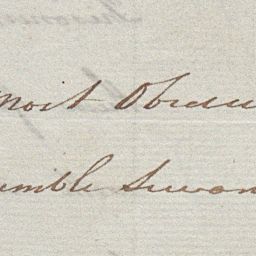 Most Obedien
umble Servan